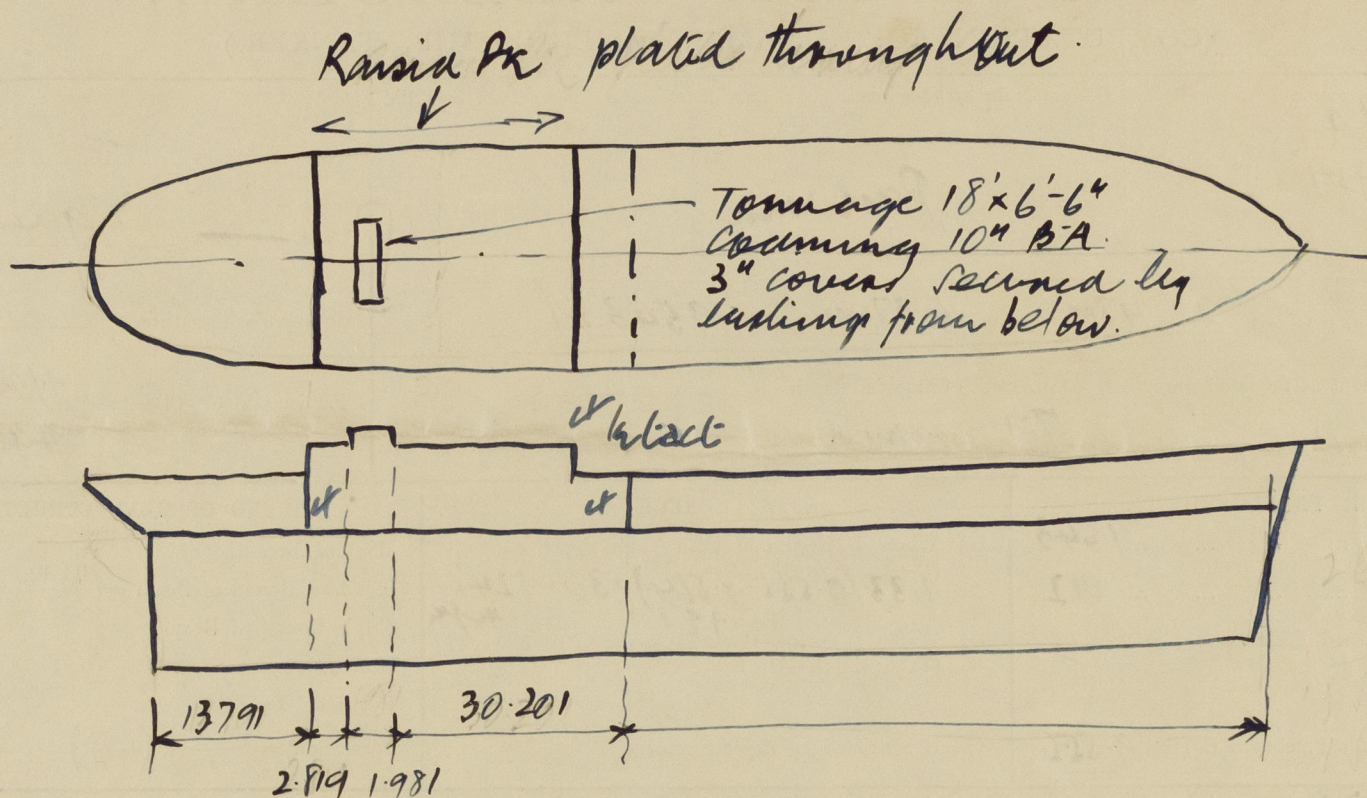 Raised Dk plated throughout.
Tonnage 18'x6'-6"
Coaming 10" B.A.
3" covers secured by
lashings from below.
Intact
13791
30.201
2.819 1.981